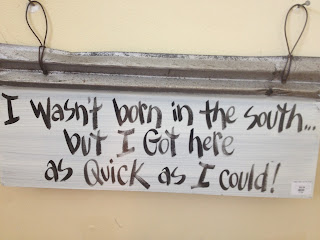 I Wasn't born in the south...
but I Got here
as Quick as I could!